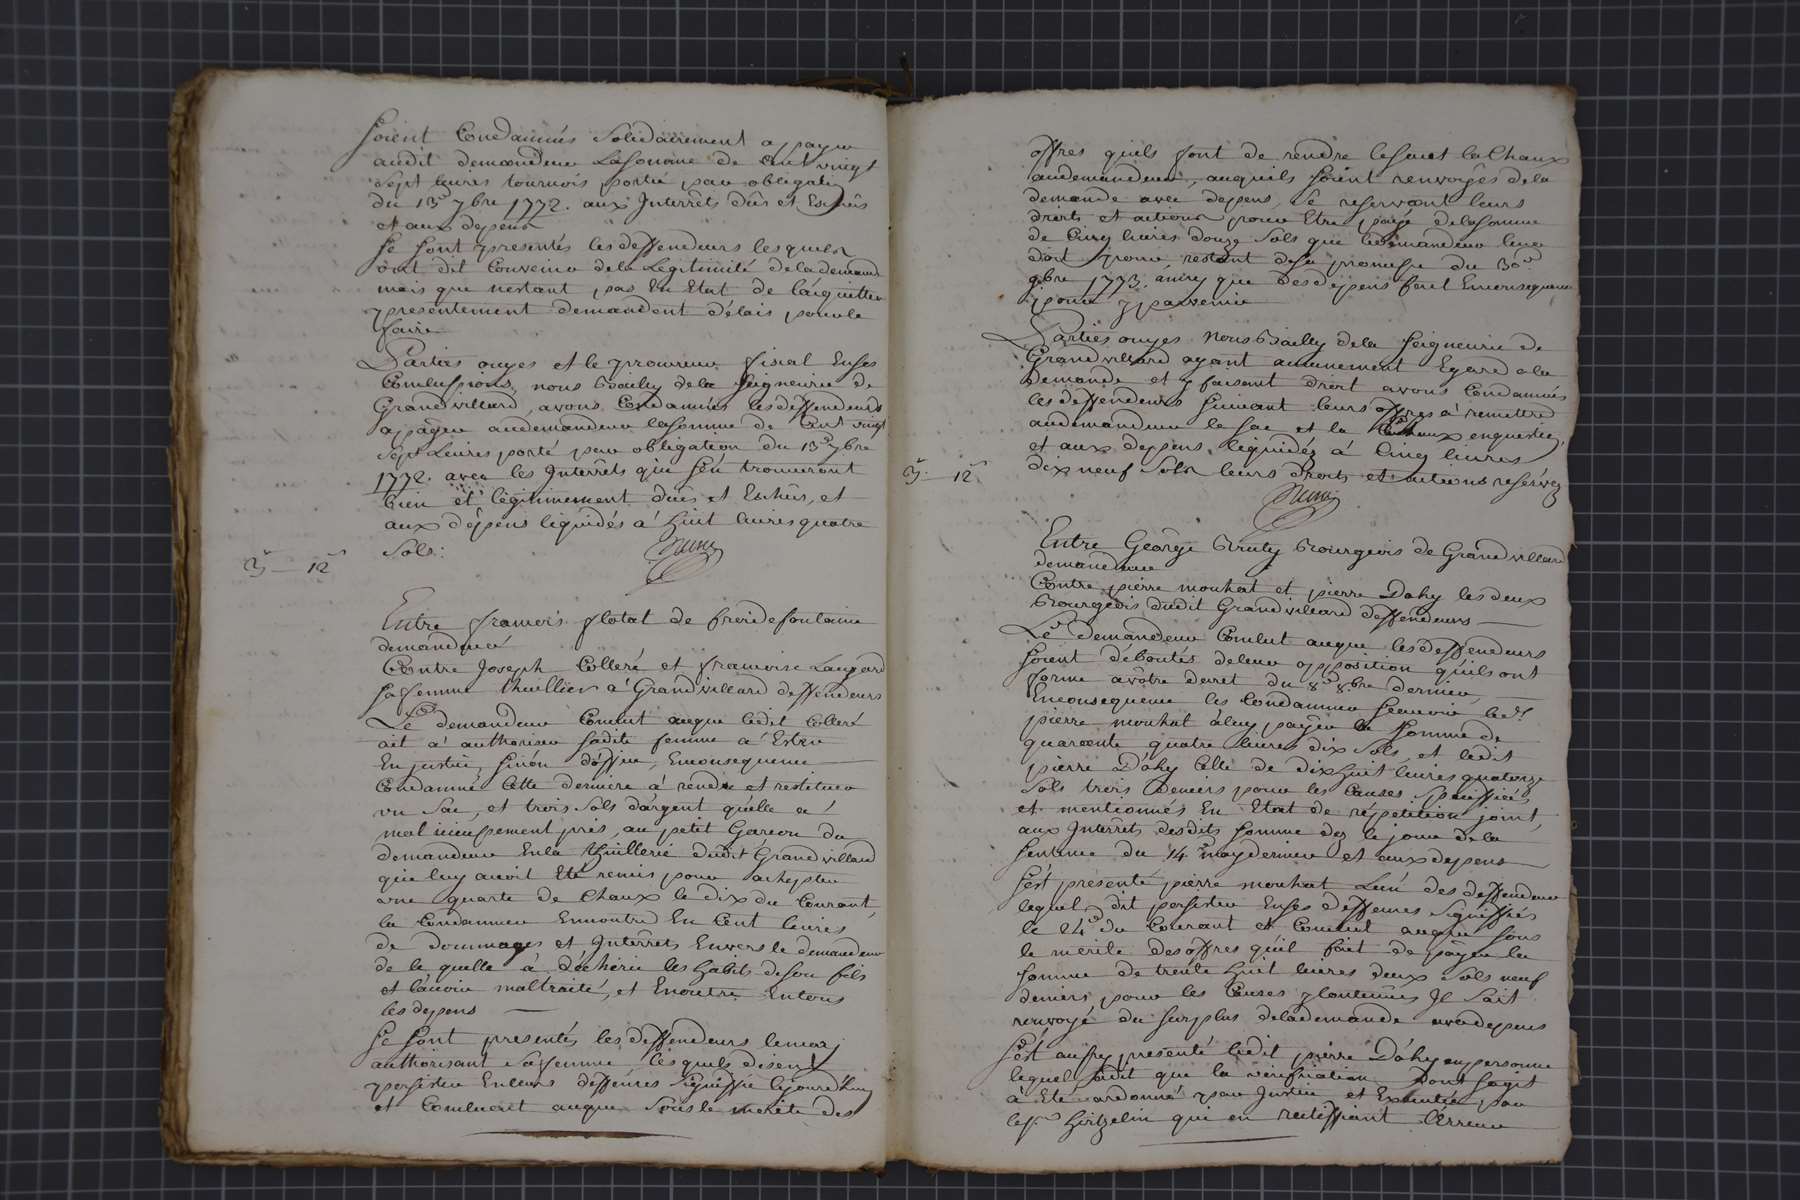 soient Condamnés Solidairement a payer
audit demandeur La somme de Cent vingt
sept livres tournois portée par obligation
du 13e 7bre 1772. aux Interrêts dûs et Eschûs
et aux depens
Se sont presentés les deffendeurs lesquels
ont dit Convenir de la Legitimité de la demande
mais que n'estant pas En Etat de l'acquitter
presentement demandent délais pour le
faire
Parties ouyes et le procureur fiscal En ses
Conclussions, nous Bailly de la Seigneurie de
Grandvillard, avons Condamnés les deffendeurs
a payer au demandeur la somme de Cent vingt
sept Livres porté par obligation du 13e 7bre
1772. avec les Interrêts qui s'en trouveront
bien et légitimement dûes et Eschûs, et
aux dépens liquidés à huit livres quatre
Sols:
3 — 12
Entre francois flotat de froidefontaine
demandeur
Contre Joseph Colleré et francoise
sa femme thuillier à Grandvillard deffendeurs
Le demandeur Conclut aceque ledit Colleré
ait à authoriser sadite femme à Ester
En justice, sinon d'office, Enconsequence
Condamné Cette derniere à rendre et restituer
un Sac, et trois Sols d'argent qu'elle a
mal icieusement pris, au petit Garcon du
demandeur En la thuillerie dudit Grandvillard
qui luy avoit Eté remis pour achepter
une quarte de Chaux le dix du Courant,
la Condamner Enoutre En Cent livres
de dommages et Interrêts Envers le demandeur
de la quelle à déchiré les habits de son fils
et l'avoir maltraité, et Enoutre Entous
les depens
Se sont presentés les deffendeurs le mary
authorisant sa femme, lesquels disent
persister En leurs deffences Signiffié le jourd'huy
et Concluent aceque Sous le merite des
offres quils font de rendre le sac et la Chaux
au demandeur, acequils soient renvoyés de la
demande avec depens, Se reservant leurs
droits et actions pour Etre payé de la somme
de Cinq livres douze Sols que le demandeur leur
doit pour restant de sa promesse du 30e
9bre 1773. ainsy que des depens fait Enconsequence
pour y parvenir
Parties ouyes Nous Bailly de la Seigneurie de
Grandvillard ayant aucunement Egard a la
demande et y faisant droit avons Condamnés
les deffendeurs suivant leurs offres à remettre
au demandeur le sac et la Chaux enquestion,
et aux depens liquidés à Cinq livres
dix neuf Sols leurs droits et actions resérvez
3 — 12
Entre George Bruty Bourgeois de Grandvillard
demandeur
Contre pierre mouhat et pierre Dahy les deux
Bourgeois dudit Grandvillard deffendeurs
Le demandeur Conclut aceque les deffendeurs
soient déboutés de leur opposition qu'ils ont
formé a vôtre decret du 8e 8bre dernier,
Enconsequence les Condamner sçavoir led.t
pierre mouhat à luy payer la somme de
quarante quatre livres dix Sols, et ledit
pierre Dahy Celle de dix huit livres quatorze
Sols trois deniers pour les Causes Speciffiées
et mentionnés En Etat de répetition joint,
aux Interrêts desdits somme dez le jour de la
sentence du 14 may dernier et aux depens
s'ést présenté pierre mouhat L'un des deffendeur
lequel dit persister En ses deffences Signiffiés
le 24e du Courant et Conclut aceque sous
le merite des offres qu'il fait de payer la
somme de trente huit livres deux Sols neuf
deniers, pour les Causes y Contenües Il Soit
renvoyé du surplus de la demande avec depens
s'ést aussy presenté ledit pierre Dahy en personne
lequel a dit que la vérifficiation Dont s'agit
à Eté ordonné par Justice et Executée par
le Sr hirtzelin qui en rectiffiant L'érreur